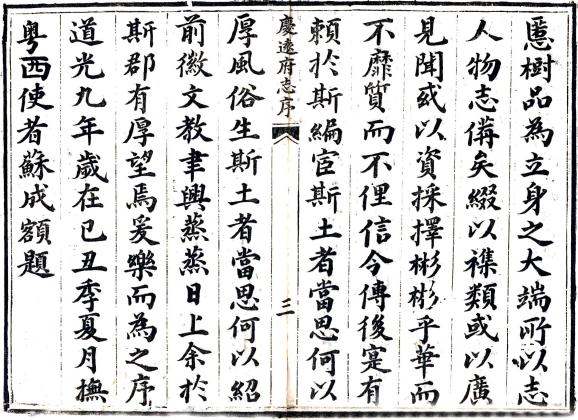 慝樹品為立身之大端所以志
人物志僃矣綴以襍類或以廣
見聞或以資採擇彬彬乎華而
不靡質而不俚信今傳後寔有
頼於斯編宦斯土者當思何以
慶遠府志序
三
厚風俗生斯土者當思何以紹
前徽文教聿興蒸蒸日上余於
斯郡有厚望焉爰樂而為之序
道光九年歲在己丑季夏月撫
粤西使者蘇成額題